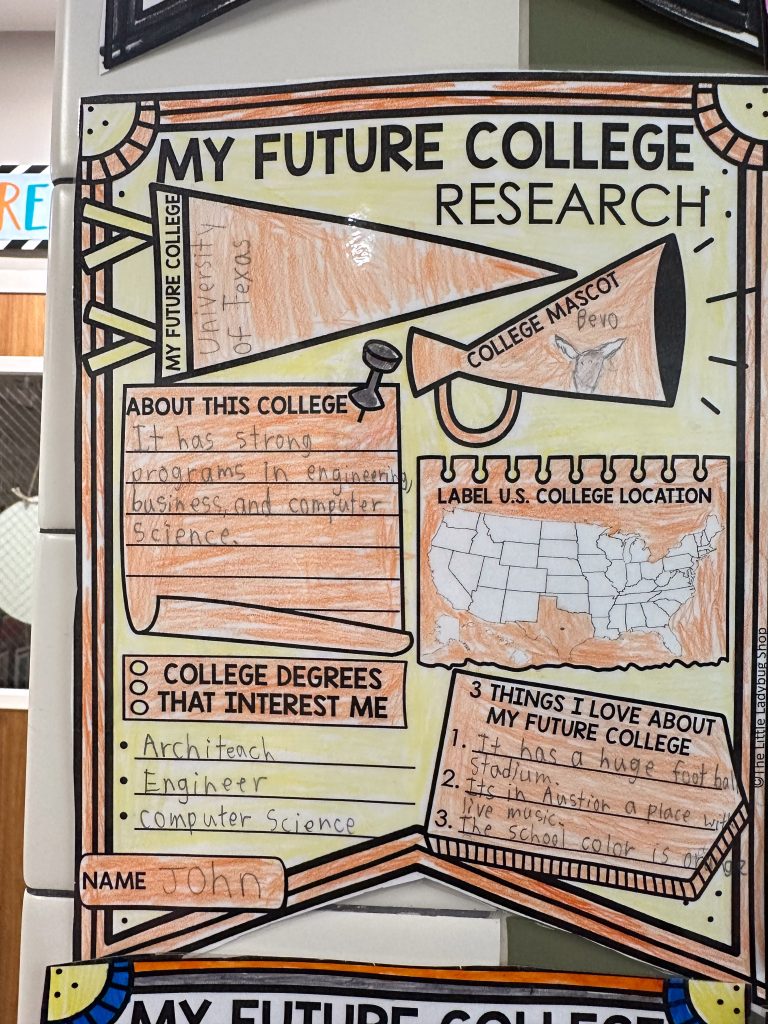 RE
MY FUTURE COLLEGE
RESEARCH
MY FUTURE COLLEGE
University
of Texas
COLLEGE MASCOT
Bevo
ABOUT THIS COLLEGE
It has strong
programs in engineering,
business, and computer
Science.
LABEL U.S. COLLEGE LOCATION
COLLEGE DEGREES
THAT INTEREST ME
• Architeach
• Engineer
• computer Science
3 THINGS I LOVE ABOUT
MY FUTURE COLLEGE
1. It has a huge foot bal
stadium.
2. Its in Austion a place with
live music.
3. The school color is orange
NAME John
©The Little Ladybug Shop
MY FUTURE COLLEGE